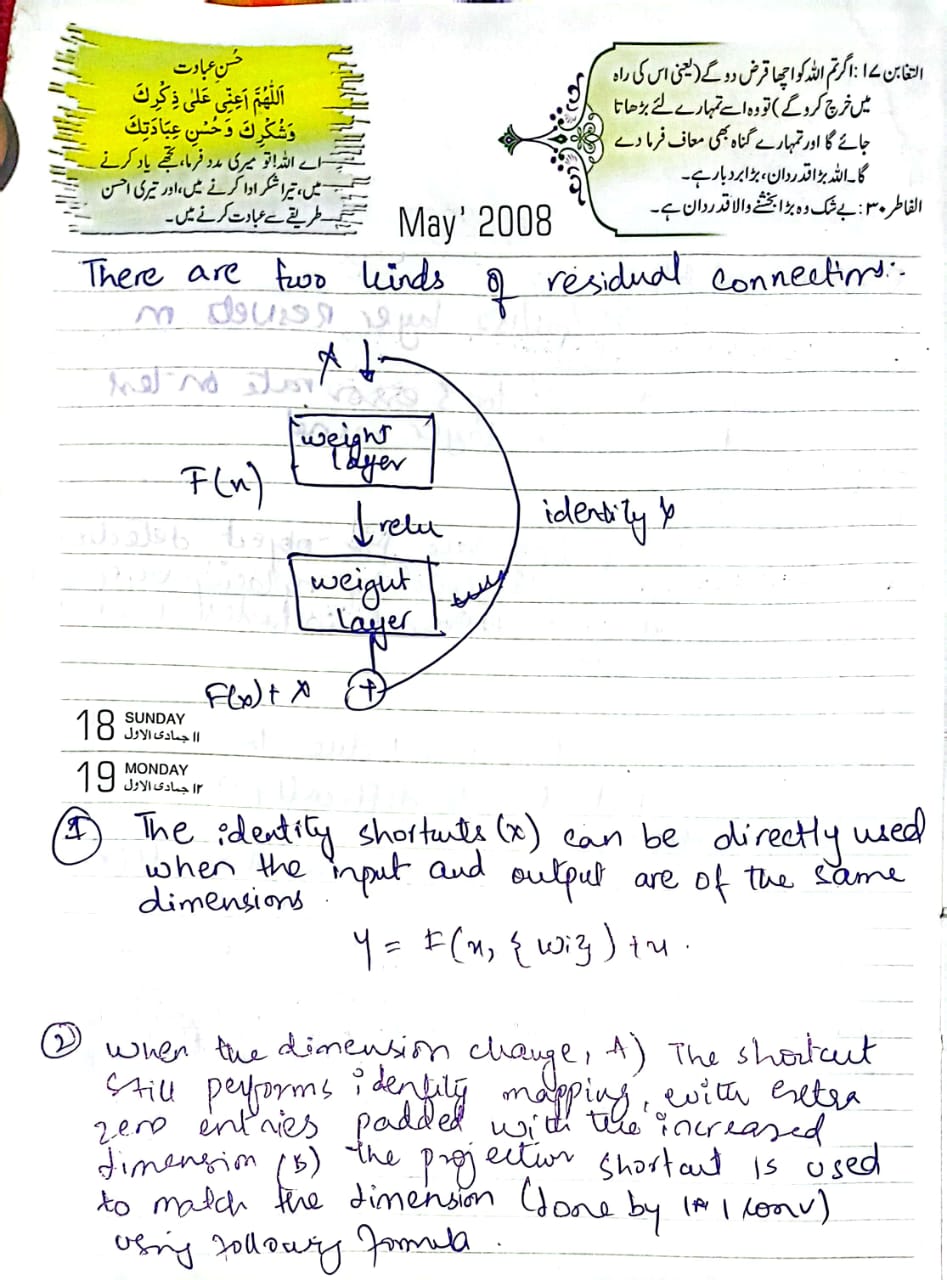 حُسنِ عبادت
اَللّٰهُمَّ اَعِنِّی عَلٰی ذِکْرِكَ
وَشُکْرِكَ وَحُسْنِ عِبَادَتِكَ
اے اللہ! تو میری مدد فرما، تجھے یاد کرنے
میں، تیرا شکر ادا کرنے میں، اور تیری احسن
طریقے سے عبادت کرنے میں۔
التغابن ۱۷: اگر تم اللہ کو اچھا قرض دو گے (یعنی اس کی راہ
میں خرچ کرو گے) تو وہ اسے تمہارے لئے بڑھاتا
جائے گا اور تمہارے گناہ بھی معاف فرما دے
گا۔ اللہ بڑا قدردان، بڑا بردبار ہے۔
الفاطر ۳۰: بے شک وہ بڑا بخشنے والا قدردان ہے۔
May' 2008
There are two kinds of residual connections:-
x
weight
layer
F(x)
relu
identity x
weight
layer
F(x) + x
+
18 SUNDAY
۱۱ جمادی الاول
19 MONDAY
۱۲ جمادی الاول
1 The identity shortcuts (x) can be directly used
when the input and output are of the same
dimensions.
y = F(x, {wi}) + x.
2 when the dimension change, A) The shortcut
still performs identity mapping, with extra
zero entries padded with the increased
dimension (B) The projection shortcut is used
to match the dimension (done by 1*1 conv)
using following formula.